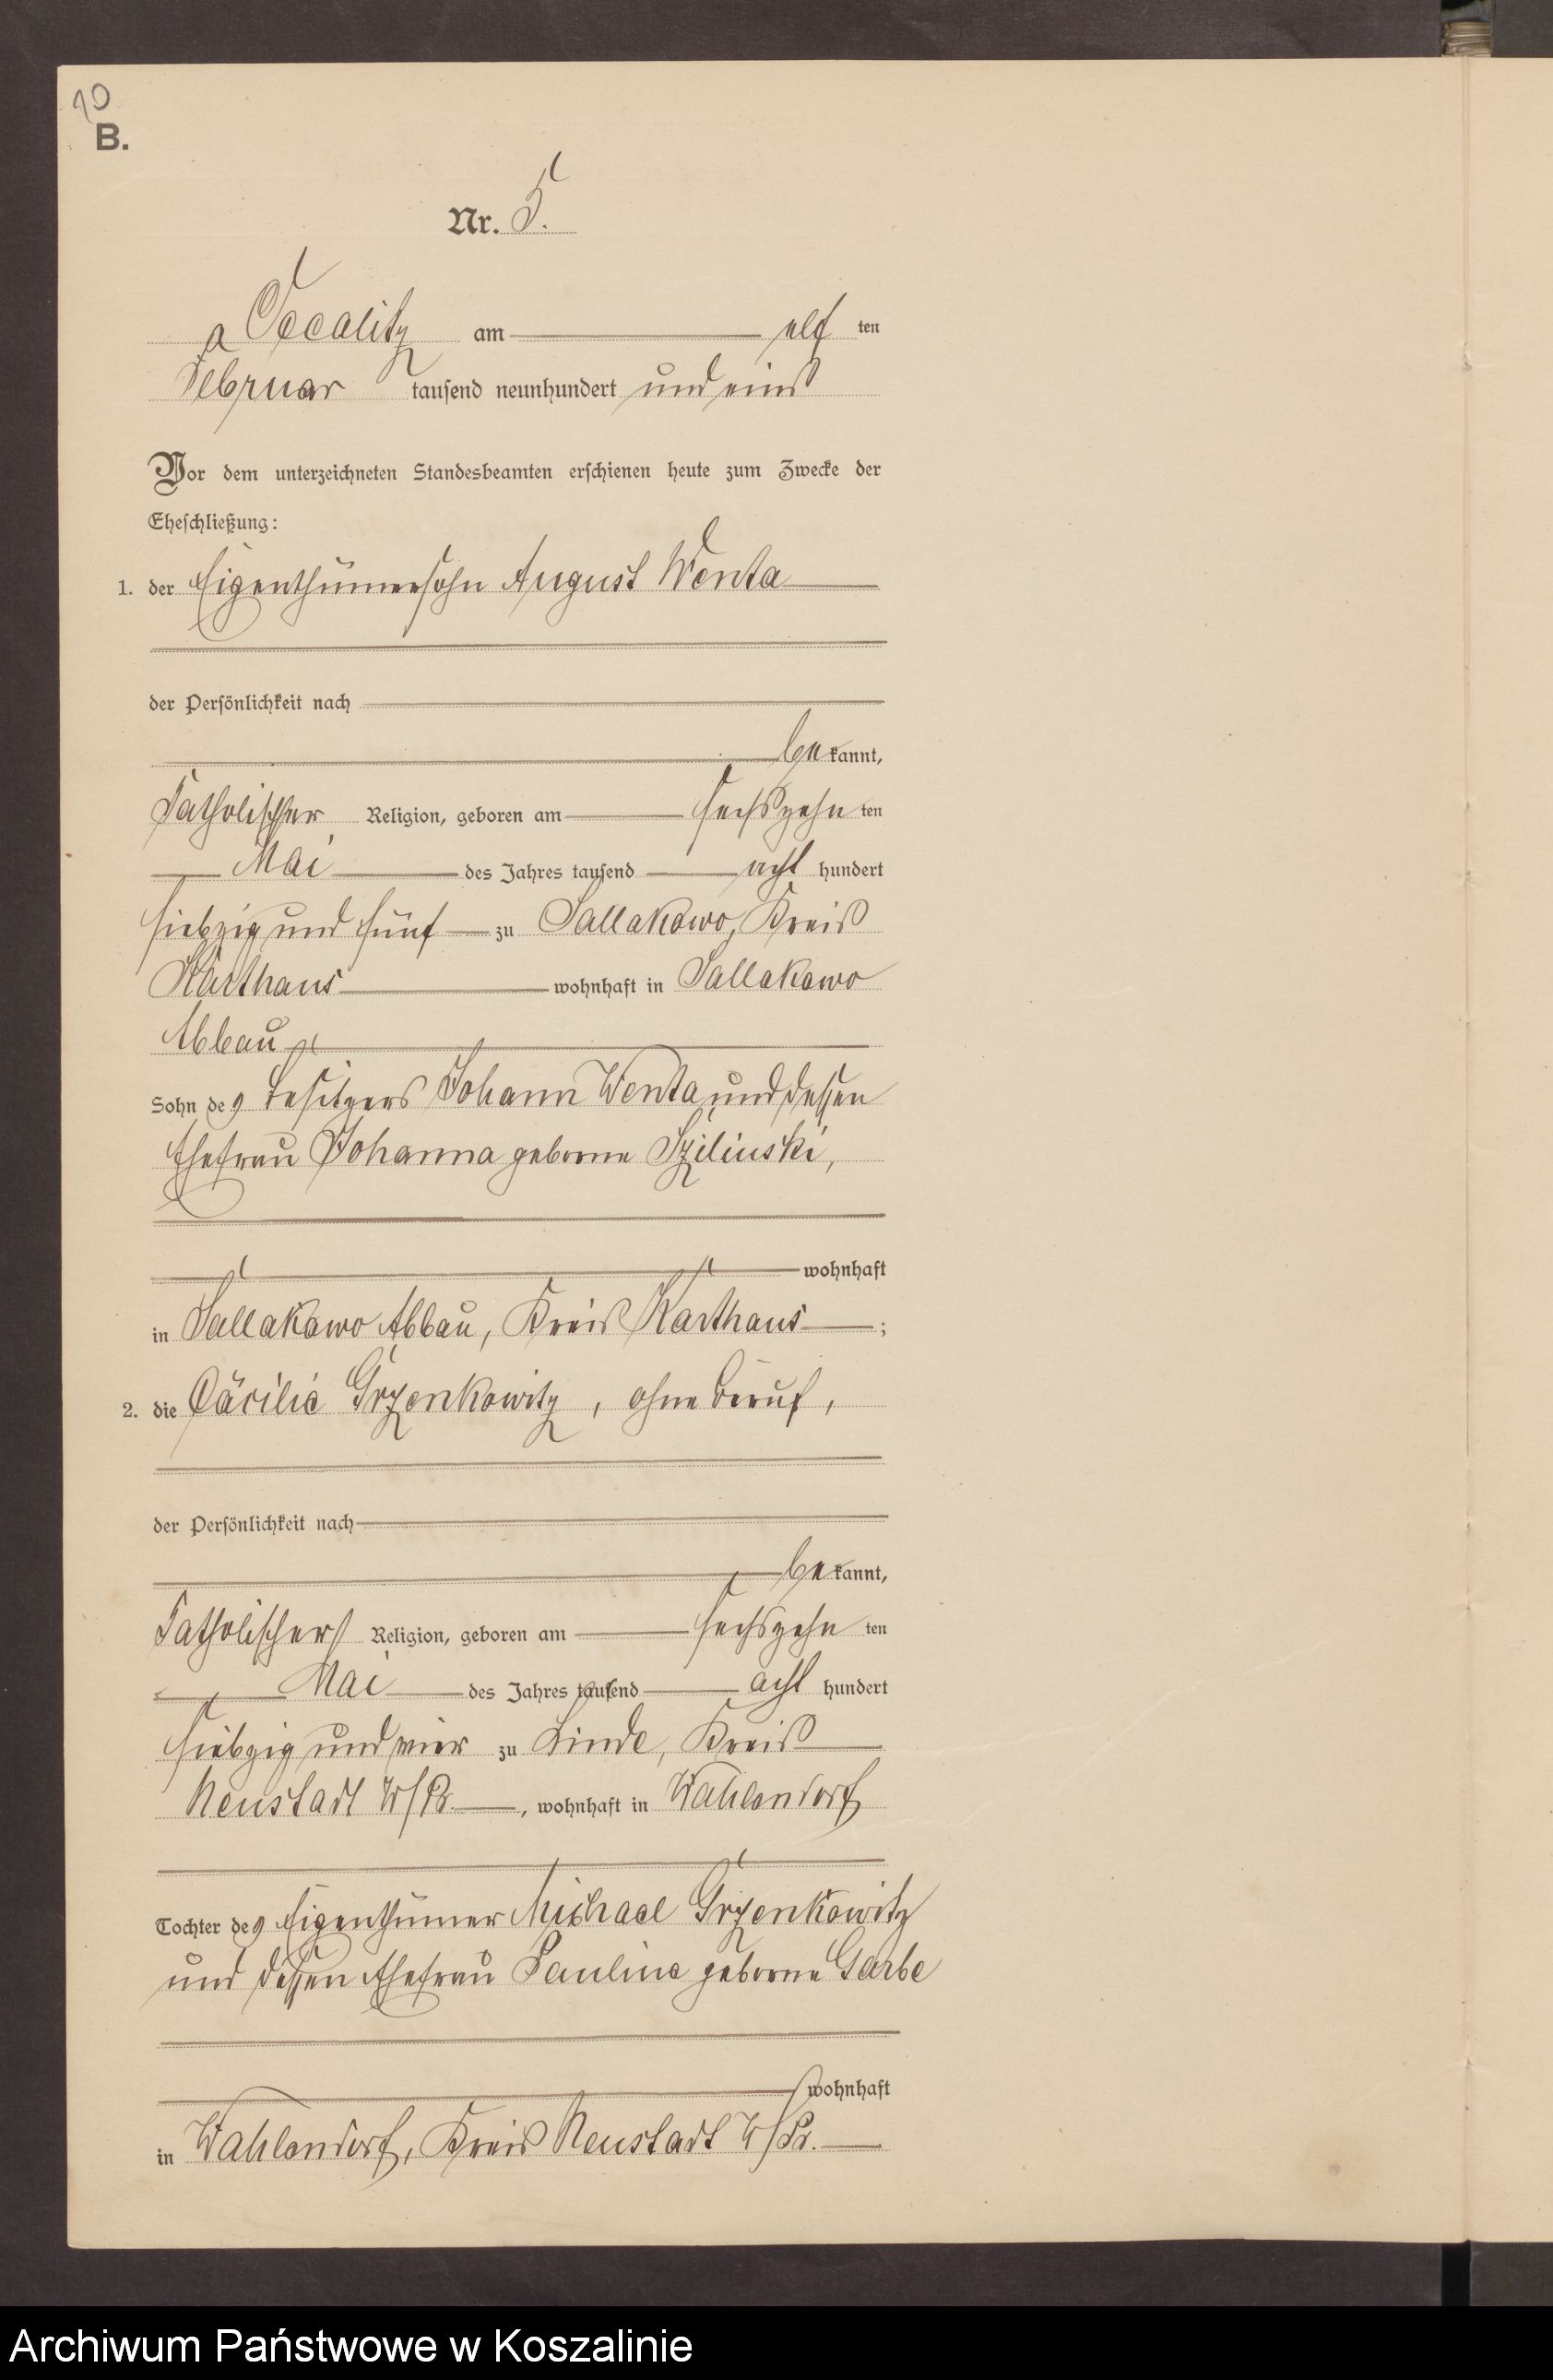 10
B.
Nr. 5.
Occalitz am elf ten
Februar tausend neunhundert und eins
Vor dem unterzeichneten Standesbeamten erschienen heute zum Zwecke der
Eheschließung:
1. der Eigenthümersohn August Wenta
der Persönlichkeit nach
be kannt,
katholischer Religion, geboren am sechszehn ten
Mai des Jahres tausend acht hundert
siebzig und fünf zu Sallakowo, Kreis
Karthaus wohnhaft in Sallakowo
Abbau
Sohn des Besitzers Johann Wenta und dessen
Ehefrau Johanna geborne Szilinski,
wohnhaft
in Sallakowo Abbau, Kreis Karthaus ;
2. die Cäcilie Grzenkowitz, ohne Beruf,
der Persönlichkeit nach
be kannt,
katholischer Religion, geboren am sechszehn ten
Mai des Jahres tausend acht hundert
siebzig und vier zu Linde, Kreis
Neustadt W/Pr. , wohnhaft in Wahlendorf
Tochter des Eigenthümer Michael Grzenkowitz
und dessen Ehefrau Pauline geborne Garbe
wohnhaft
in Wahlendorf, Kreis Neustadt W/Pr.
Archiwum Państwowe w Koszalinie